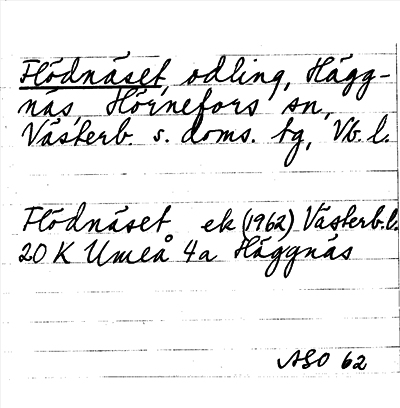 Flödnäset, odling, Hägg-
näs, Hörnefors sn,
Västerb. s. doms. tg, Vb. l.
Flödnäset ek (1962) Västerb. l.
20 K Umeå 4a Häggnäs
ASO 62